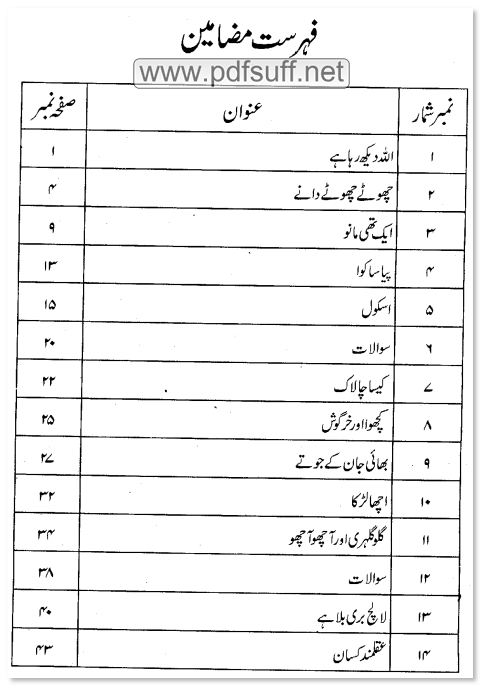 فہرست مضامین
www.pdfsuff.net
نمبر شمار عنوان صفحہ نمبر
۱ اللہ دیکھ رہا ہے ۱
۲ چھوٹے چھوٹے دانے ۴
۳ ایک تھی مانو ۹
۴ پیاسا کوا ۱۳
۵ اسکول ۱۵
۶ سوالات ۲۰
۷ کیسا چالاک ۲۲
۸ کچھوا اور خرگوش ۲۵
۹ بھائی جان کے جوتے ۲۷
۱۰ اچھا لڑکا ۳۲
۱۱ گلو گلہری اور آچھو آچھو ۳۴
۱۲ سوالات ۳۸
۱۳ لالچ بری بلا ہے ۴۰
۱۴ عقلمند کسان ۴۳